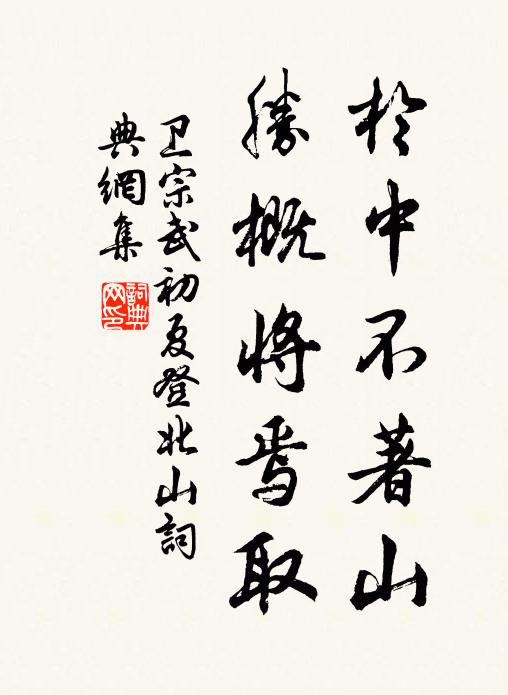 於中不著山
勝概將焉取
卫宗武初夏登北山詞
典網集
詞典
网印